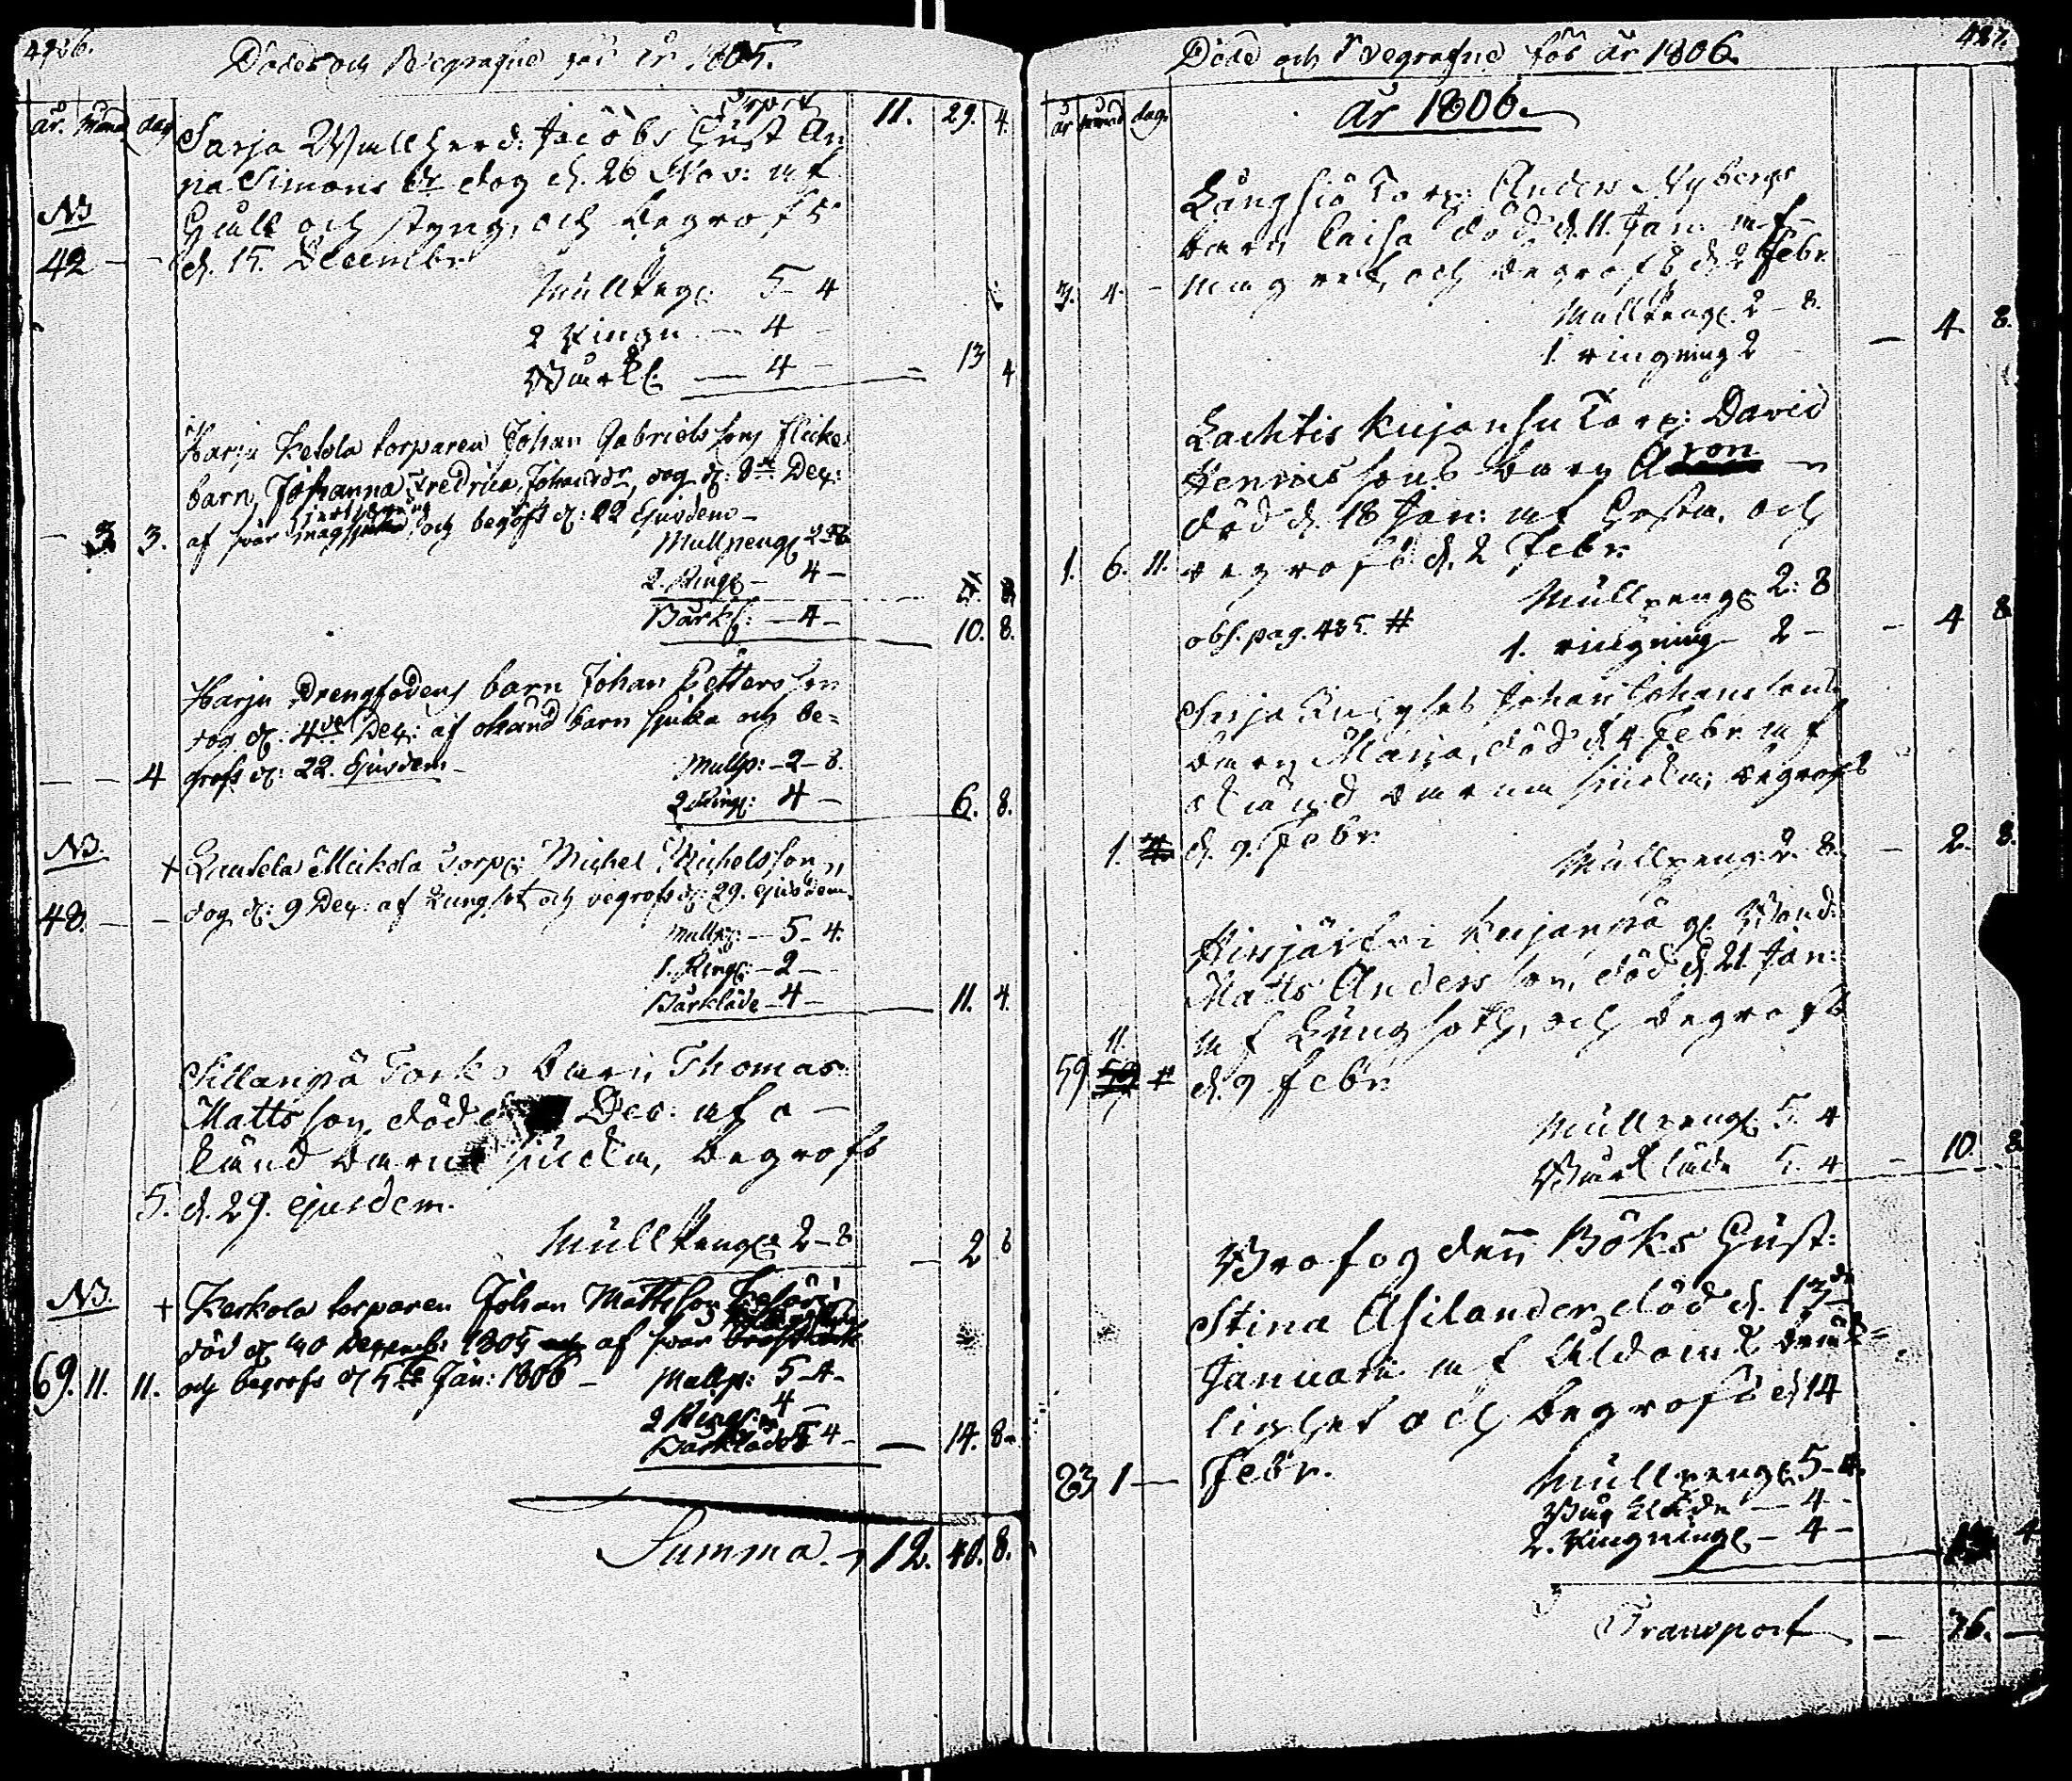 426.
Döde och Begrafne för år 1805.
år. månad dag
Transport 11. 29. 4.
Sarja Wallherd: Jacobs Hust An
na Simons dr dog d. 26 Nov: af
NB
Håll och styng, och begrofs
42 - - d. 15. Decembr
Mullpeng: 5 - 4
2 Ringn - 4 -
Bårkl: - 4 - - 13 4
Harju Ketola torparen Johan Gabrielssons flicke
barn, Johanna Fredrica Johansdr, dog d: 8de Dec:
- 3 3. af svår och begrofs d: 22 Ejusdem -
Mullpeng 2-8
2. Ring - 4 -
Bårkl: - 4 - 10. 8.
Harju Drengfodens barn Johan Pettersson
dog d: 4de Dec: af okänd barn sjuka och be=
- - 4 grofs d: 22. Ejusdem -
Mullp: - 2 - 8.
2 Ring: 4 - 6. 8.
NB.
+ Lautela Mickola Torp: Michel Michelsson,
48. - - dog d: 9 Dec: af Lungsot och begrofs d: 29. ejusdem.
Mullp: - 5 - 4.
1. Ring: - 2 -
Bårkläde - 4 - 11. 4.
Sillanpä Torks barn Thomas
Mattsson, död d Dec: af o -
känd barna siucka, begrofs
5. d. 29. ejusdem.
Mullpeng 2 - 8 - 2 8
NB. + Kerkola torparen Johan Mattsson
död d Decemb: 1805 af svår
69. 11. 11. och begrofs d 5te Jan: 1806 - Mullp: 5 - 4 -
2 Ring: 4 -
Bårkläde 5 4 - - 14. 8.
Summa. 12. 40. 8.
427.
Döde och Begrafne för år 1806.
år månad dag.
år 1806.
Långsiö Torp: Anders Nybergs
barn Caisa död d. 11. Jan: af
3. 4. - magref, och begrofs d. 2 Febr.
Mullpeng: 2 - 8.
1. ringning 2 - - 4. 8.
Lachtis Kujansu Torp: David
Henrics sons barn Aron
död d. 18 Jan: af Hosta, och
1. 6. 11. begrofs d. 2 Febr.
Mullpeng 2: 8
obs. pag. 435. #
1. ringning - 2 - - 4 8
Johan Johanssons
barn Maria, död d 4 Febr. af
okänd barna siucka, begrofs
1. d. 9. Febr.
Mullpeng: 2. 8. - 2. 8.
Hirsjärfvi Kujanpä g. Bond:
Matts Andersson, död d. 21. Jan:
11. af Lungsoth, och begrofs
59 d. 9 Febr.
Mullpeng 5. 4
Bårkläde 5. 4 - 10. 8
Brofogden Böks Hust:
Stina Asilander, död d. 13de
Januari af Ålderdoms bräck=
lighet och begrofs d 14
83 1 - Febr.
Mullpeng 5 - 4.
Bårkläde - 4 -
2. Ringning - 4 - 13 4
Transport. - 36. -